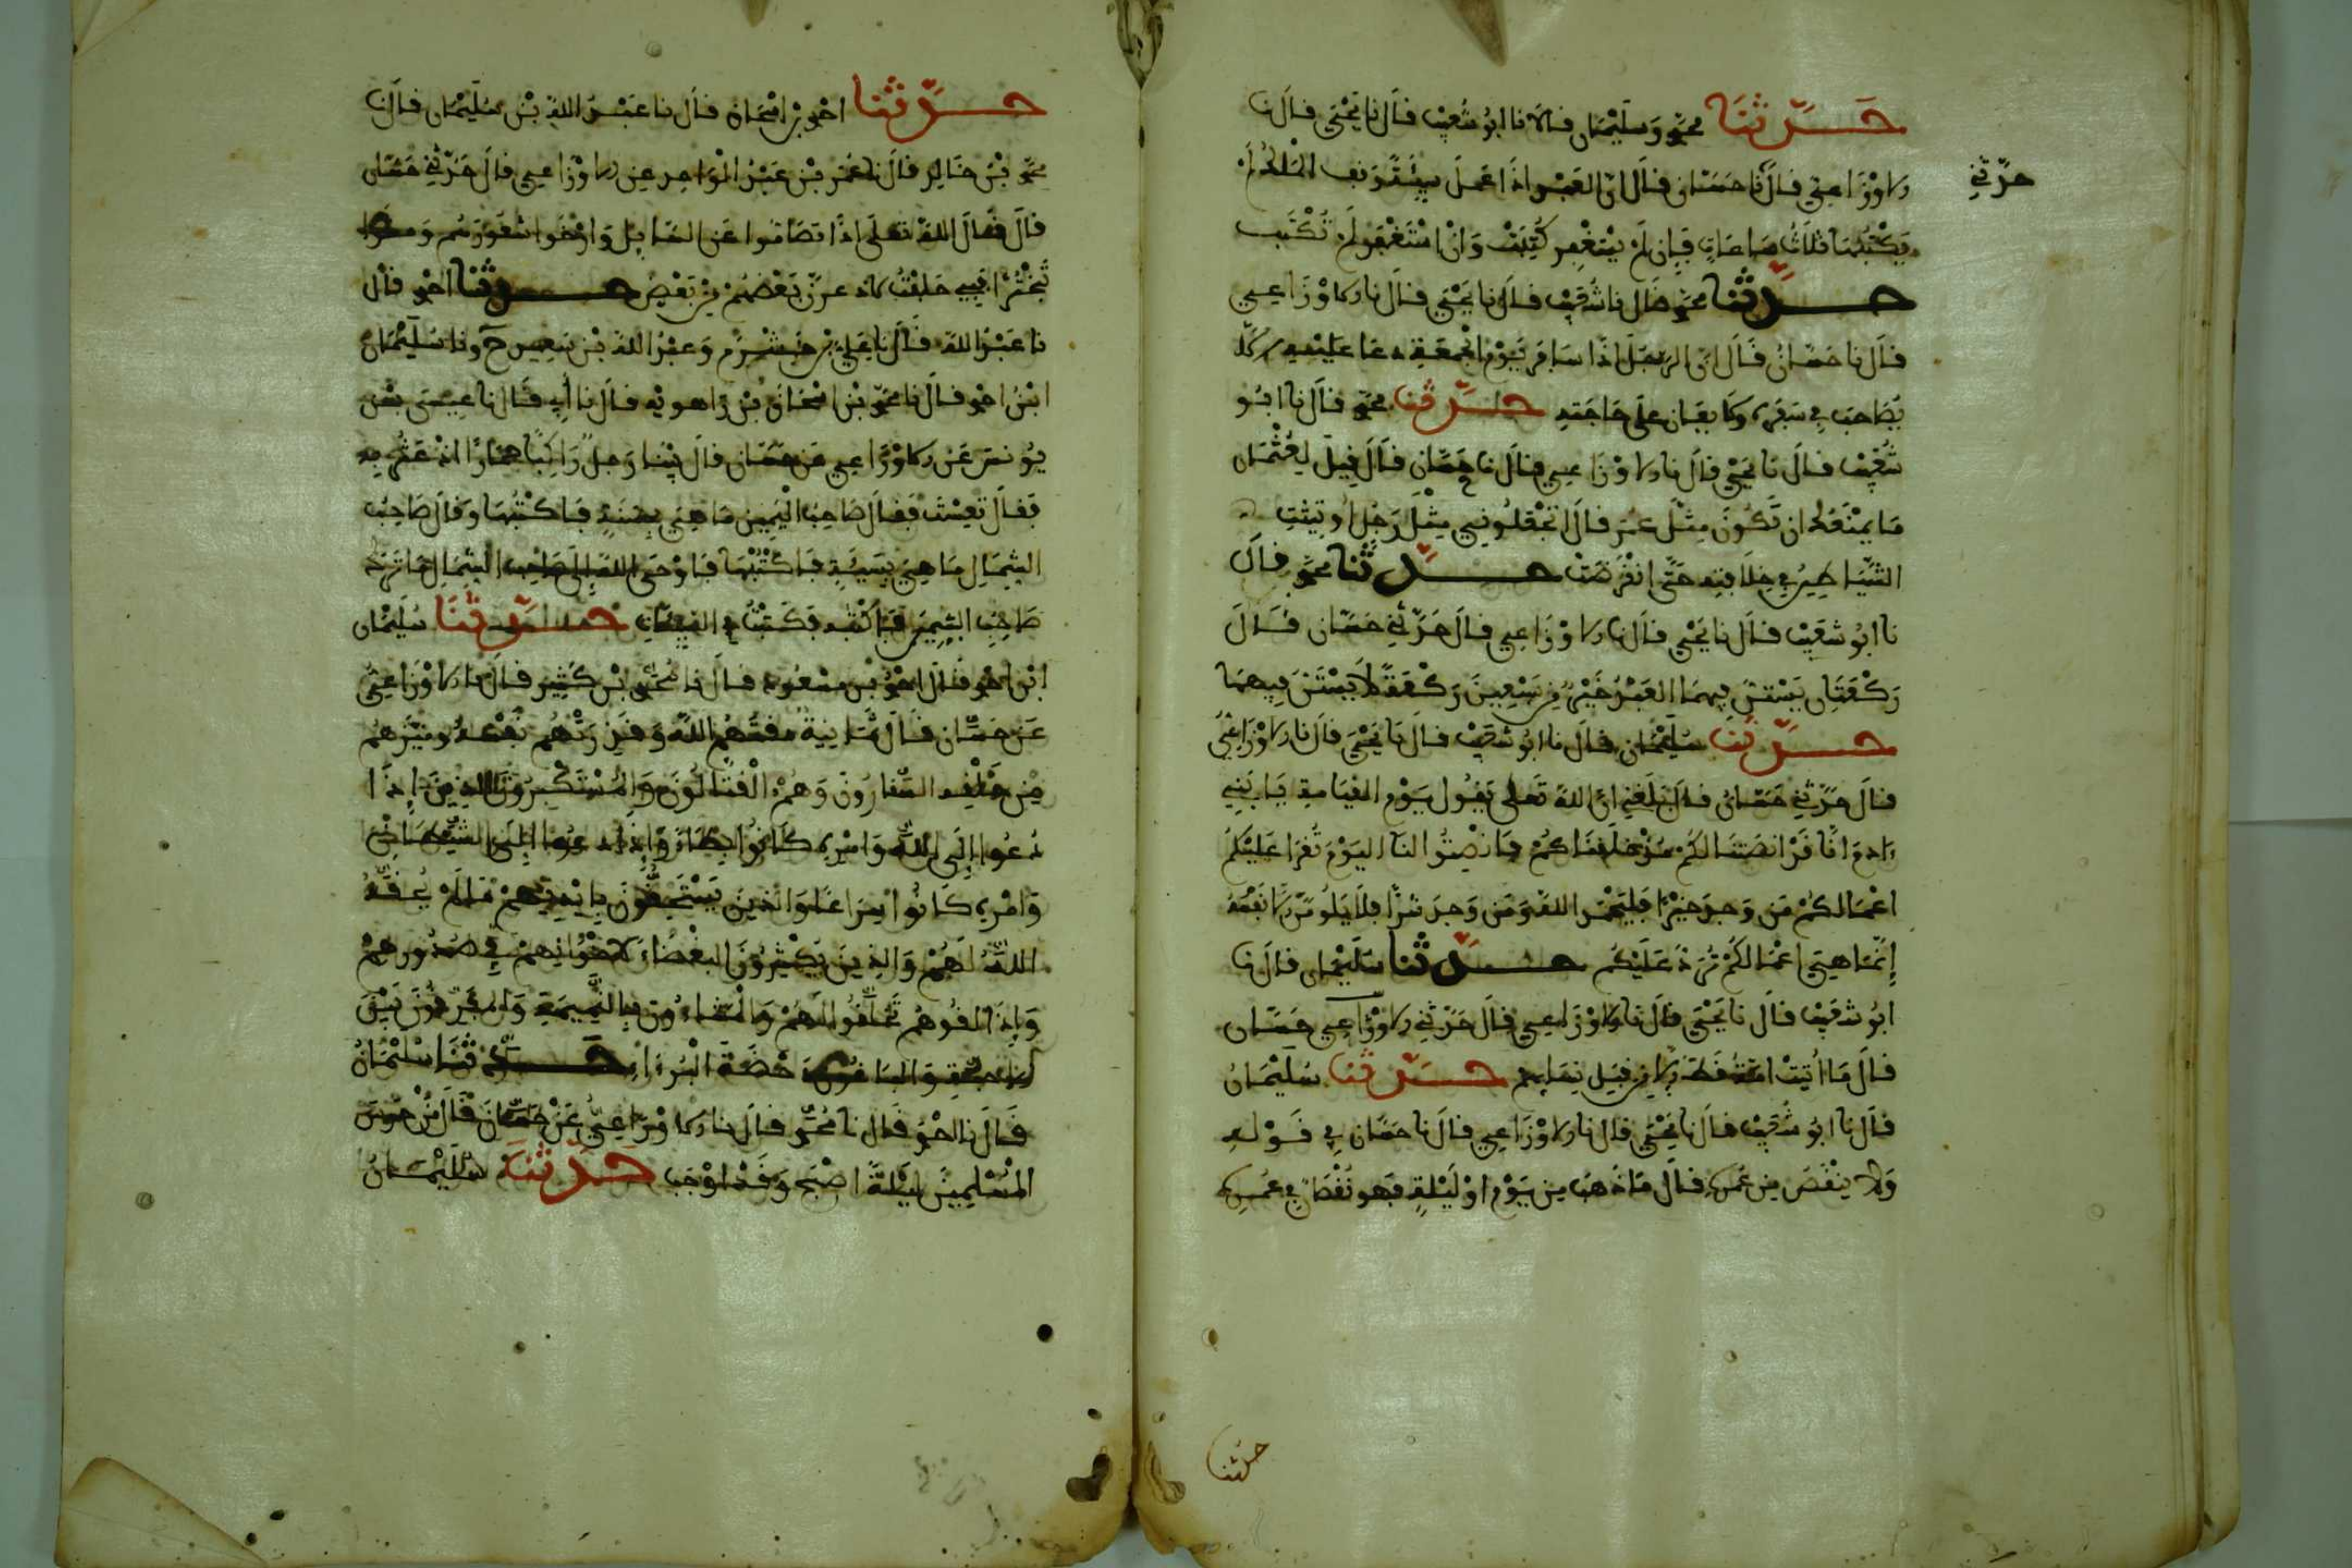 حدثنا محمد وسليمان قالا نا ابو شعيب قال نا يحيى قال نا
الاوزاعي قال نا حسان قال ان العبد اذا عمل سيئة وقف الملك لم
حدثني
يكتبها ثلاث ساعات فإن لم يستغفر كتبت وان استغفر لم تكتب
حدثنا محمد قال نا شعيب قال نا يحيى قال نا الاوزاعي
قال نا حسان قال ان الرجل اذا سافر يوم الجمعة دعا عليه الا
يصاحب في سفره ولا يعان على حاجته حدثنا محمد قال نا ابو
شعيب قال نا يحيى قال نا الاوزاعي قال نا حسان قال قيل لعثمان
ما يمنعك ان تكون مثل عمر قال اتجعلوني مثل رجل اوثقت
الشياطين في خلافته حتى انقرضت حدثنا محمد قال
نا ابو شعيب قال نا يحيى قال نا الاوزاعي قال حدثني حسان قال
ركعتان يستن فيهما العبد خير من سبعين ركعة لا يستن فيهما
حدثنا سليمان قال نا ابو شعيب قال نا يحيى قال نا الاوزاعي
قال حدثني حسان قال بلغني ان الله تعلى يقول يوم القيامة يا بني
ءادم انا قد انصتنا لكم منذ خلقناكم فانصتوا لنا اليوم تقرا عليكم
اعمالكم من وجد خيرا فليحمد الله ومن وجد شرا فلا يلومن الا نفسه
إنما هي اعمالكم ترد عليكم حدثنا سليمان قال نا
ابو شعيب قال نا يحيى قال نا الاوزاعي قال حدثني الاوزاعي حسان
قال ما أتيت امة قط الا من قبل نسايهم حدثنا سليمان
قال نا ابو شعيب قال نا يحيى قال نا الاوزاعي قال نا حسان في قوله
ولا ينقص من عمره قال ما ذهب من يوم او ليلة فهو نقصان في عمره
حدثنا
حدثنا احمد بن اسحاق قال نا عبد الله بن سليمان قال نا
محمد بن خالد قال نا عمر بن عبد الواحد عن الاوزاعي قال حدثني حسان
قال قال الله تعلى اذا تصاموا عن السايل
فبي حلفت لاد عون بعضهم من بعض حدثنا احمد قال
نا عبد الله قال نا علي بن خشرم وعبد الله بن سعيد ح ونا سليمان
ابن احمد قال نا محمد بن اسحاق بن راهويه قال نا أبي قال نا عيسى بن
يونس عن الاوزاعي عن حسان قال بينا رجل راكبا حمارا اذ عثر به
فقال تعست فقال صاحب اليمين ما هي بحسنة فاكتبها وقال صاحب
الشمال ما هي بسيئة فاكتبها فاوحى الله إلى صاحب الشمال ما ترك
صاحب اليمين فاكتبه فكتبت في السيئات حدثنا سليمان
ابن احمد قال نا احمد بن مسعود قال نا محمد بن كثير قال نا الاوزاعي
عن حسان قال ثمانية مقتهم الله وقذرتهم نفسه وميزهم
من خلقه السقارون وهم القتالون والمستكبرون الذين إذا
دعوا إلى الله وامره كانوا بطاء وإذا دعوا إلى الشيطان
وامره كانوا سراعا والذين يستحلون بايمانهم ما لم يحقه
الله لهم والذين يكثرون البغضاء لاخوانهم في صدورهم
وإذا لقوهم تخلقوا لهم والمشاءون بالنميمة والمفرقون بين
دحضة البرءاء حدثنا سليمان
قال نا احمد قال نا محمد قال نا الاوزاعي عن حسان قال من حرس
المسلمين ليلة اصبح وقد اوجب حدثنا سليمان